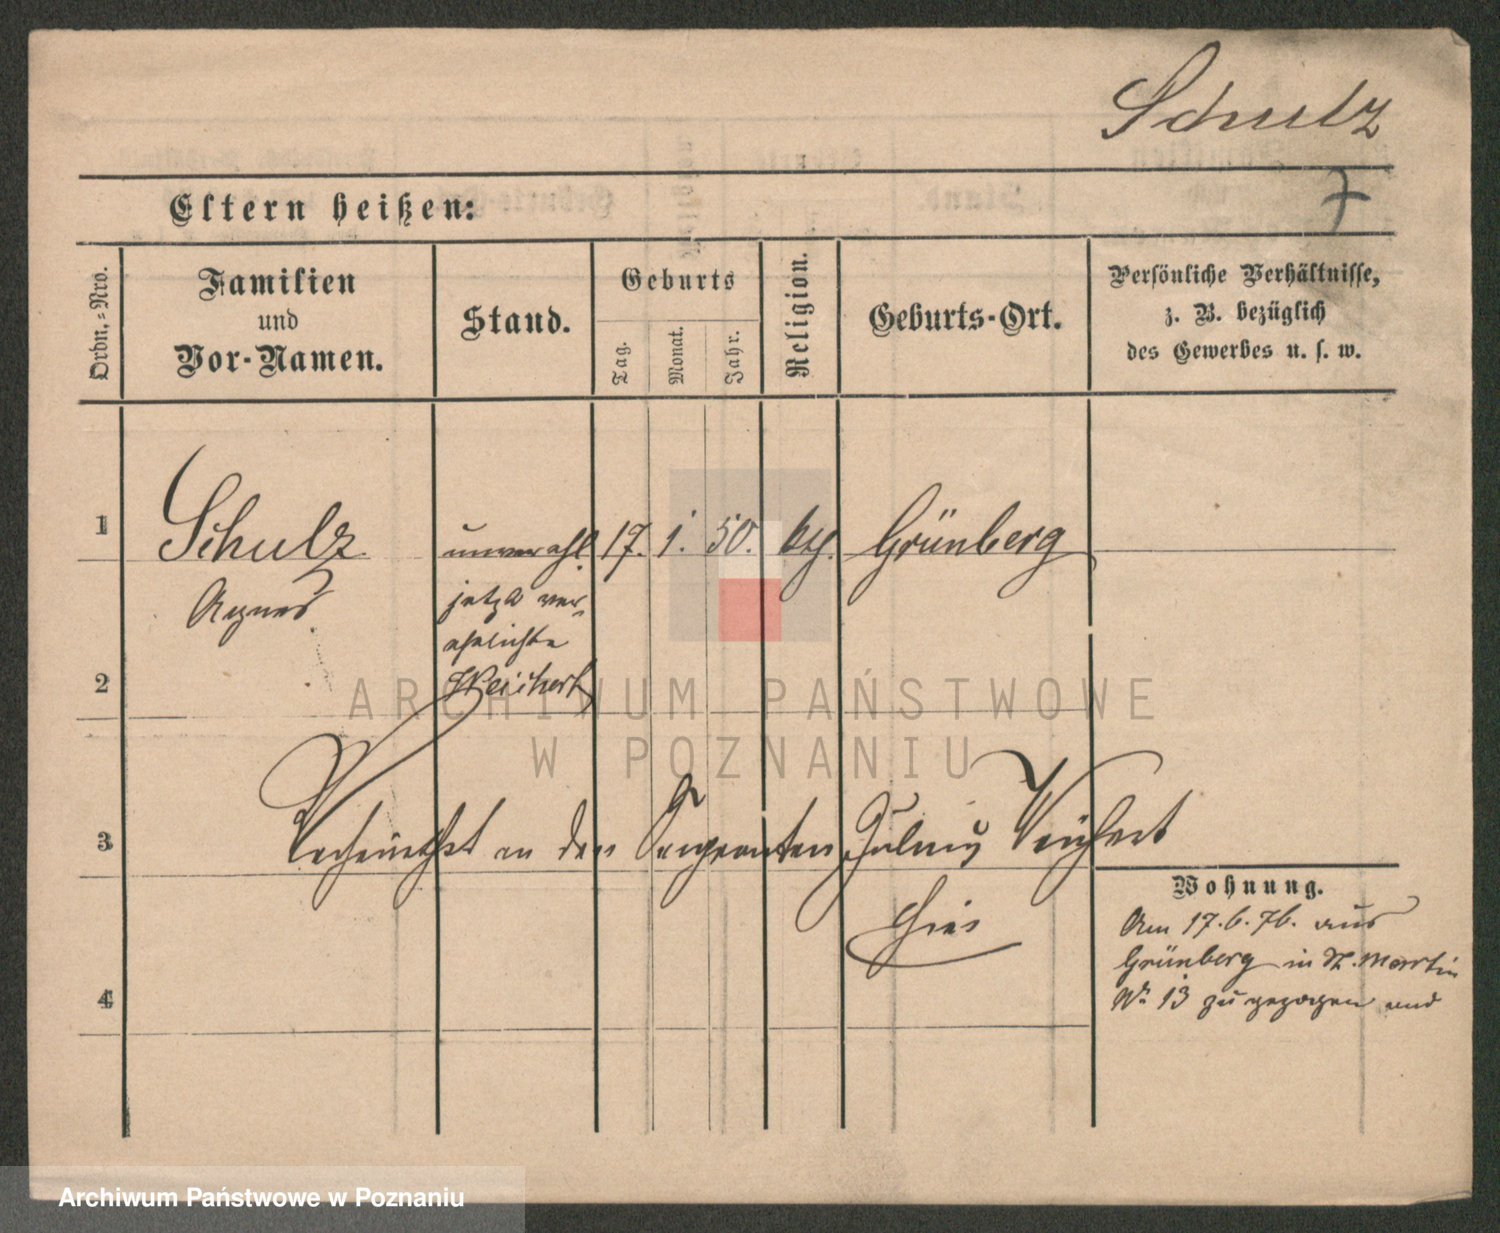 Schulz
7
Eltern heißen:
Ordn.-Nro.
Familien
und
Vor-Namen.
Stand.
Geburts
Tag.
Monat.
Jahr.
Religion.
Geburts-Ort.
Persönliche Verhältnisse,
z. B. bezüglich
des Gewerbes u. s. w.
1
Schulz unverehl. 17. 1. 50. Grünberg
Agnes
jetzt ver-
ehelichte
Weichert
2
3
Verheirathet an den Sergeanten Julius Weichert
hier
4
Wohnung.
Am 17.6.76. aus
Grünberg in St. Martin
No 13 zugezogen und
ARCHIWUM PAŃSTWOWE
W POZNANIU
Archiwum Państwowe w Poznaniu